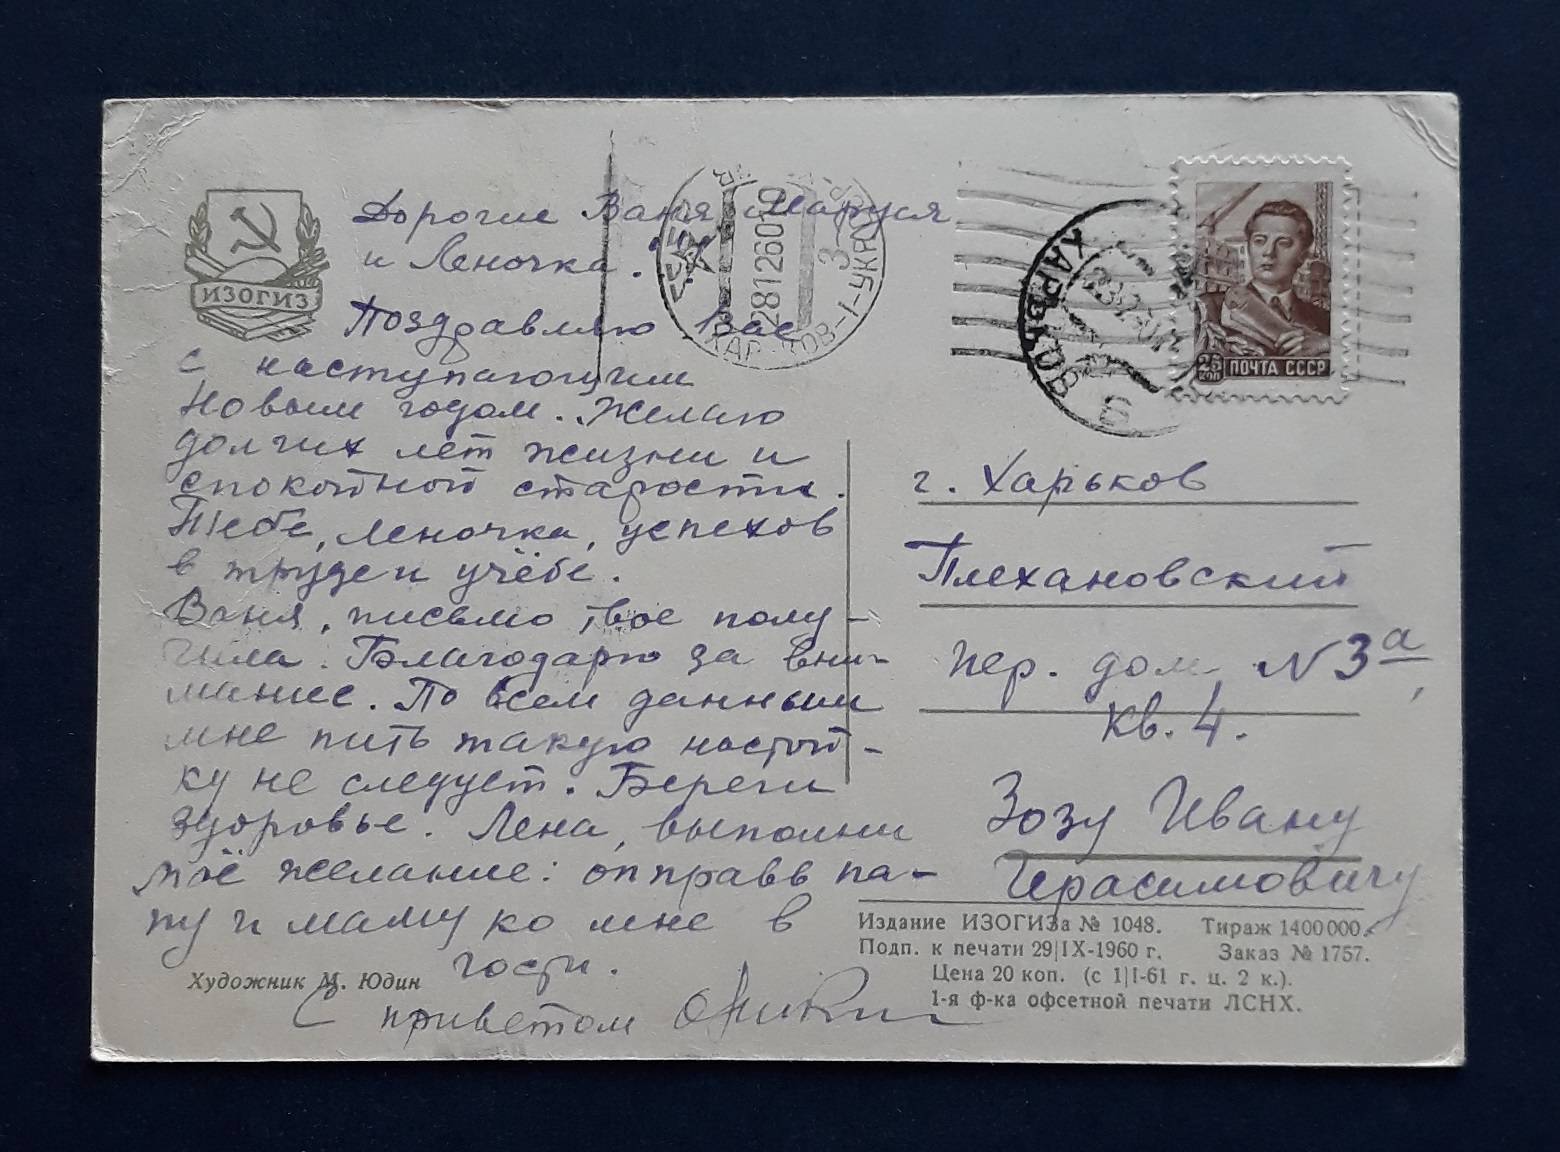 ИЗОГИЗ
Дорогие Ваня, Маруся
и Леночка.
Поздравляю Вас
с наступающим
Новым годом. Желаю
долгих лет жизни и
спокойной старости.
Тебе, Леночка, успехов
в труде и учёбе.
Ваня, письмо твое полу-
чила. Благодарю за вни-
мание. По всем данным
мне пить такую настой-
ку не следует. Береги
здоровье. Лена, выполни
моё желание: отправь па-
пу и маму ко мне в
гости.
С приветом
Художник М. Юдин
ХАРЬКОВ-1-УКР
281260
ХАРЬКОВ
26 КОП ПОЧТА СССР
г. Харьков
Плехановский
пер. дом N 3а,
кв. 4.
Зозу Ивану
Герасимовичу
Издание ИЗОГИЗа № 1048. Тираж 1400000.
Подп. к печати 29|IX-1960 г. Заказ № 1757.
Цена 20 коп. (с 1|I-61 г. ц. 2 к.).
1-я ф-ка офсетной печати ЛСНХ.